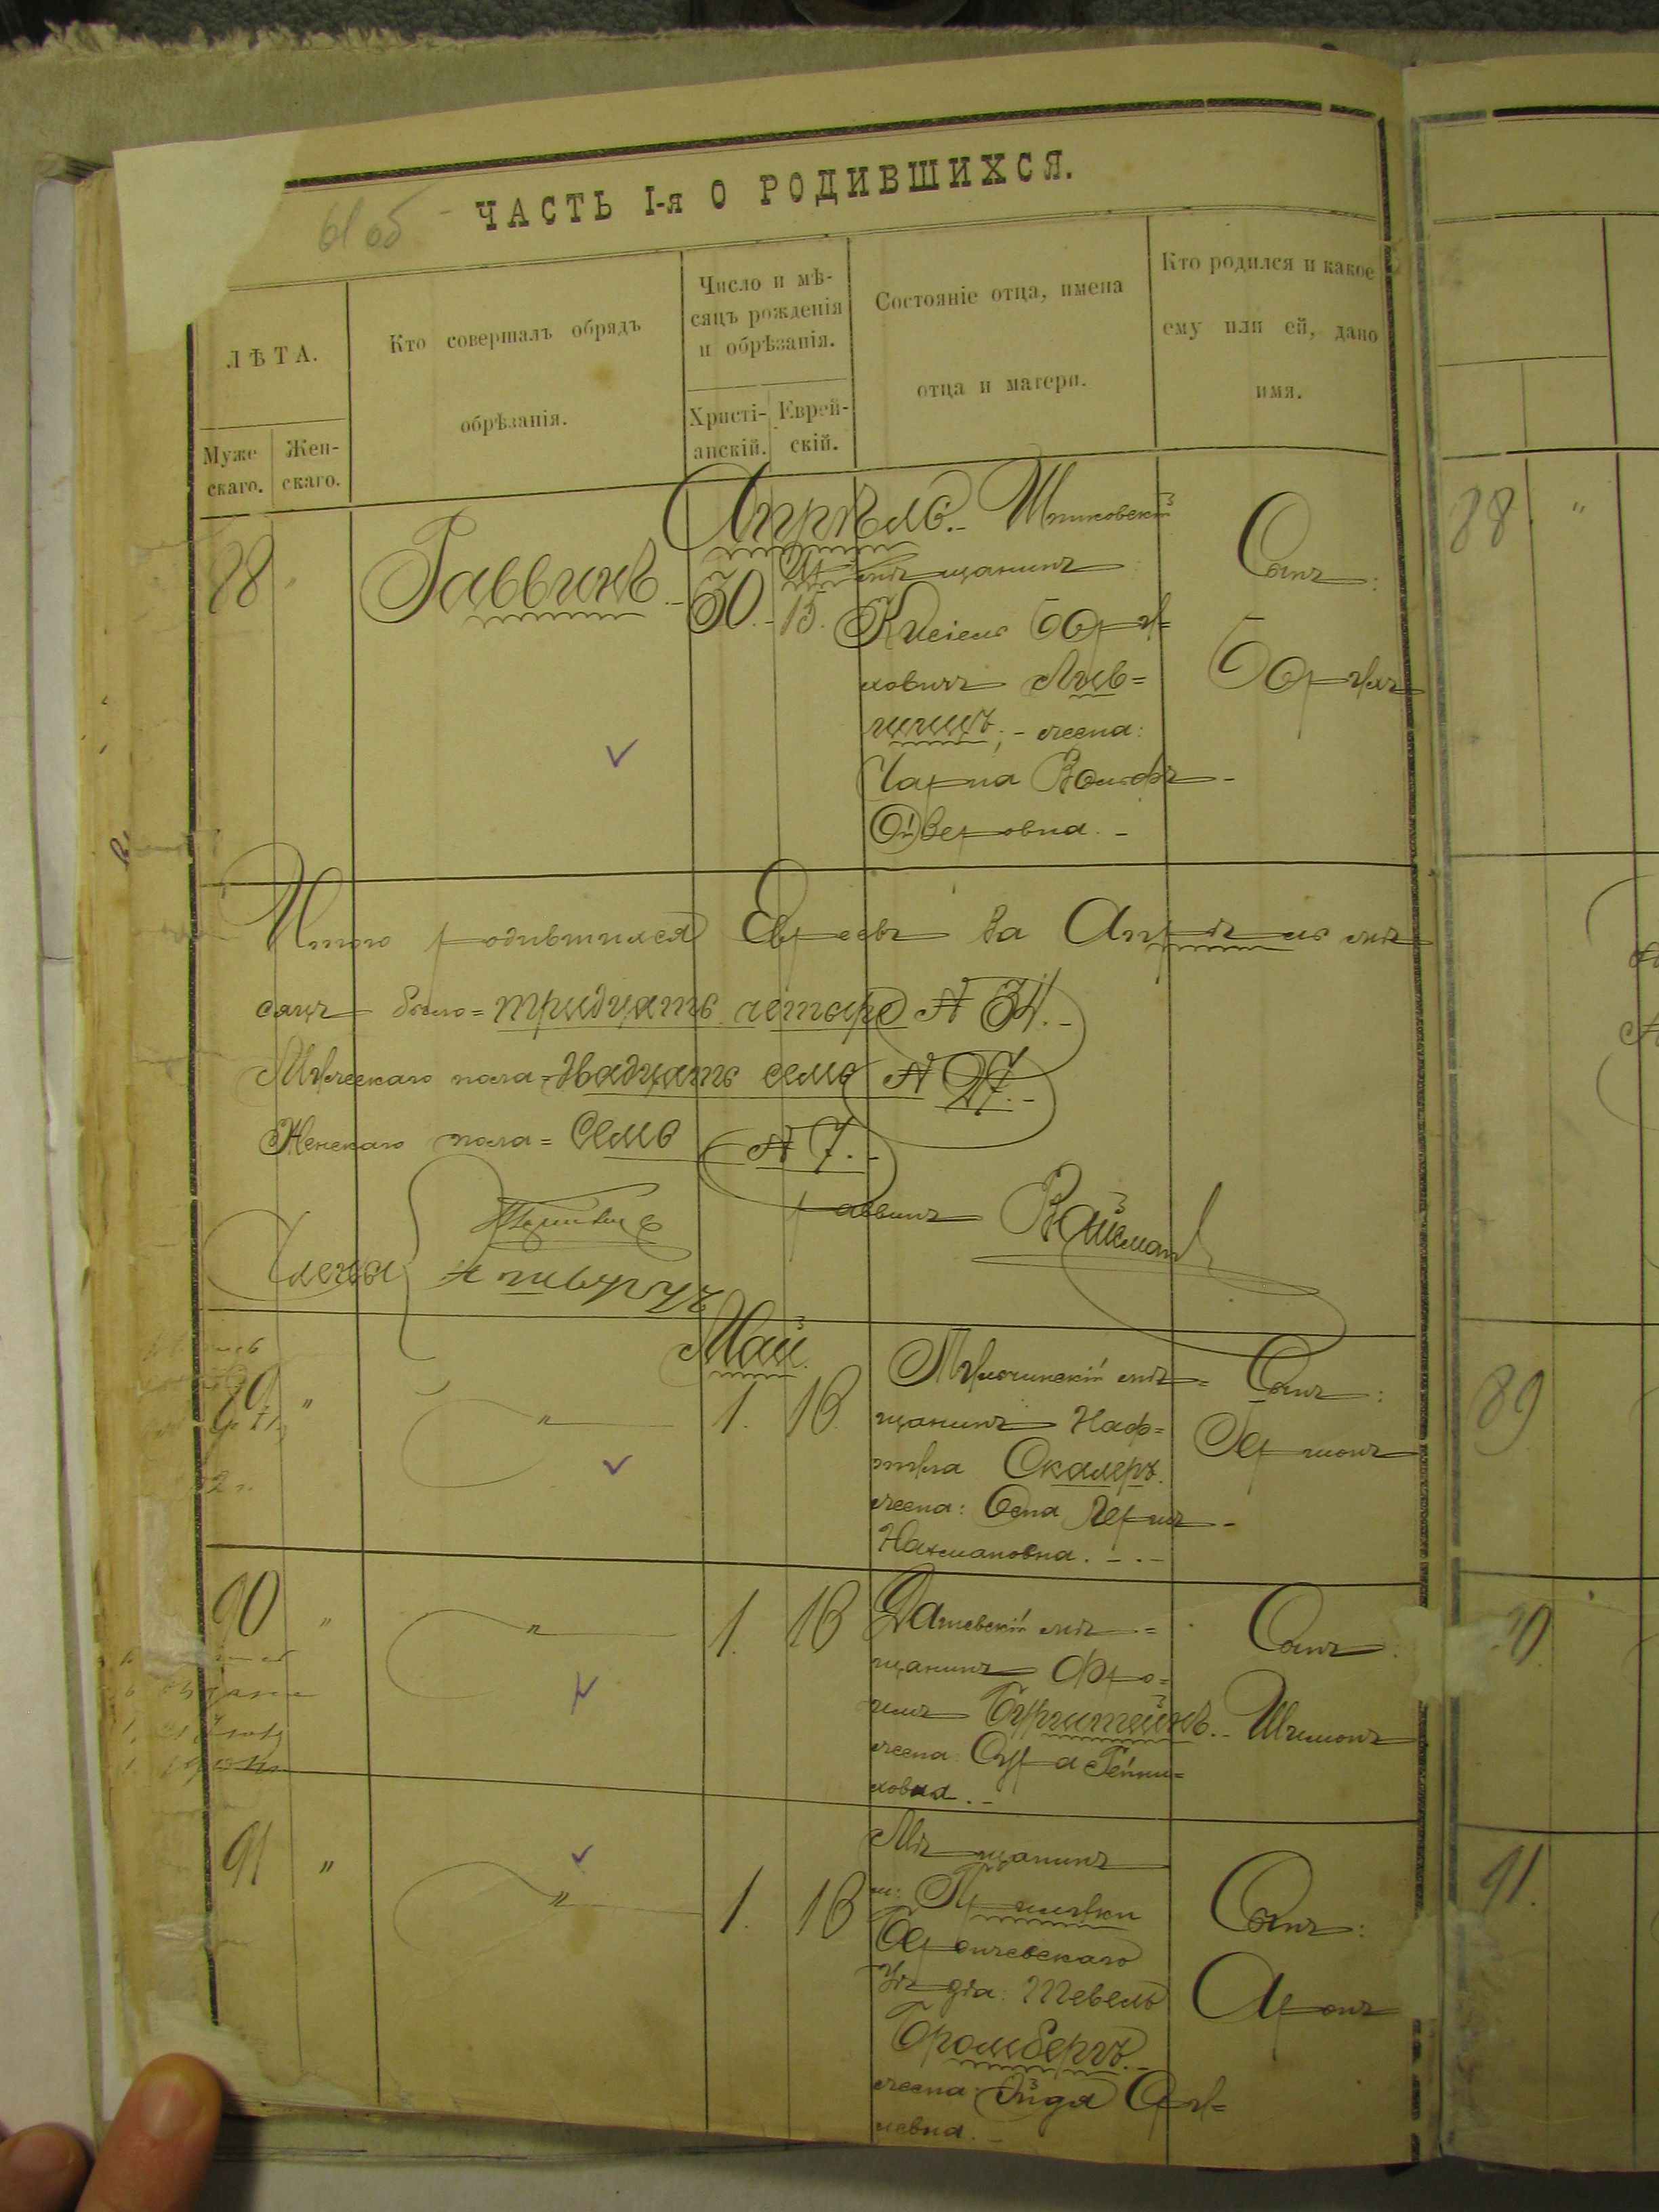 61 об
ЧАСТЬ I-я О РОДИВШИХСЯ.
ЛѢТА.
Муже
скаго.
Жен-
скаго.
Кто совершалъ обрядъ
обрѣзанія.
Число и мѣ-
сяцъ рожденія
и обрѣзанія.
Христі-
анскій.
Еврей-
скій.
Состояніе отца, имена
отца и матери.
Кто родился и какое
ему или ей, дано
имя.
Апрѣль.
88 Раввинъ 30. 15.
Шпиковскій
мѣщанинъ
Кисіель Бору-
ховичъ Лив-
шицъ; жена:
Чарна Вольфъ-
Оверовна.
Сынъ:
Борухъ
88 "
Итого родившихся Евреевъ за Апрѣль мѣ-
сяцъ было = тридцать четыре № 34.
Мужескаго пола = двадцать семь № 27.
Женскаго пола = семь № 7.
раввинъ Вайсманъ
Члены
Май
89 " " 1. 16.
мѣ-
щанинъ Наф-
тула Скалеръ.
жена: Бена Перль-
Нахмановна.
Сынъ:
Гершонъ
89
90 " " 1. 16
Дашевскій мѣ-
щанинъ Фро-
имъ Бурштейнъ.
жена: Сура
ховна.
Сынъ:
Шимонъ
90.
91 " " 1. 16
Мѣщанинъ
м:
Бердичевскаго
Уѣзда: Тевель
Бромбергъ.
жена: Эйдя Сру-
левна.
Сынъ:
Аронъ
91.